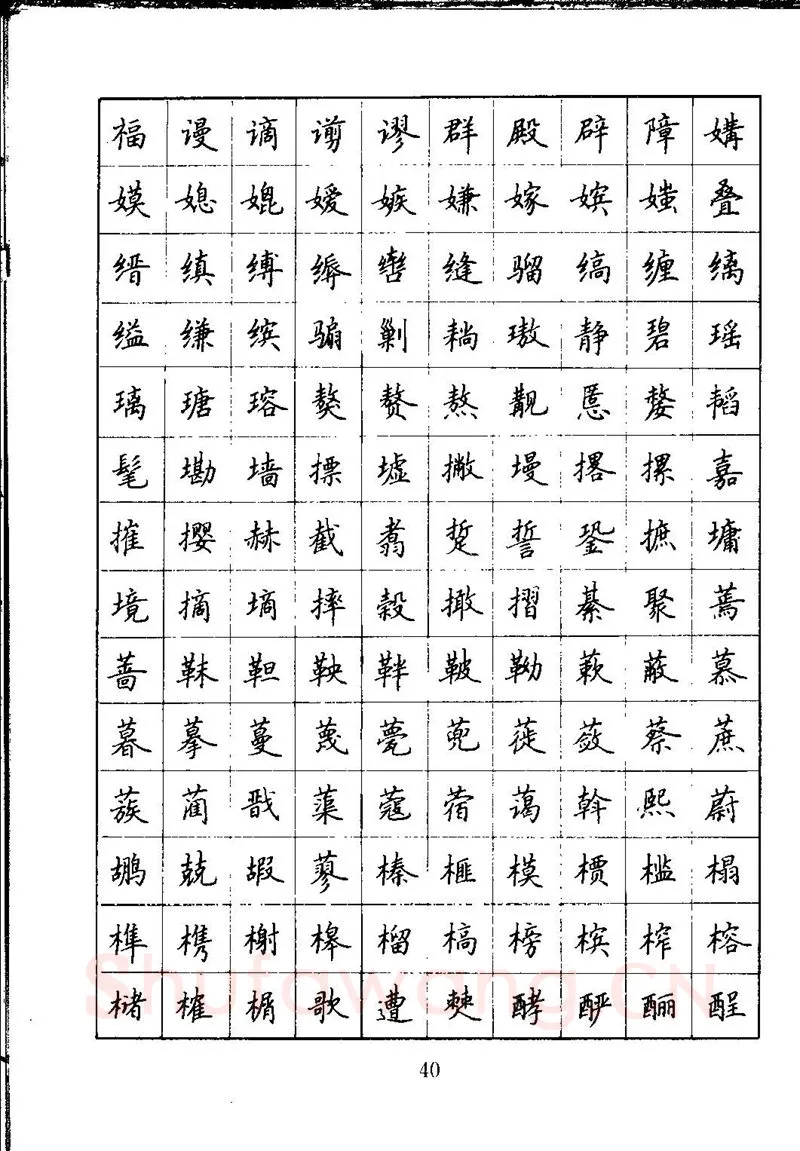 福谩谪谫谬群殿辟障媾
嫫媳媲嫒嫉嫌嫁嫔媸叠
缙缜缚缛辔缝骝缟缠缡
缢缣缤骟剿耥璈静碧瑶
璃瑭瑢獒赘熬觏慝嫠韬
髦墈墙摽墟撇墁撂摞嘉
摧撄赫截翥踅誓銎摭墉
境摘墒摔榖撖摺綦聚蔫
蔷靺靼鞅靽鞁靿蔌蔽慕
暮摹蔓蔑甍蔸蓰蔹蔡蔗
蔟蔺戬蕖蔻蓿蔼斡熙蔚
鹕兢嘏蓼榛榧模槚槛榻
榫槜榭槔榴槁榜槟榨榕
槠榷榍歌遭僰酵酽酾酲
Shufawang.CN
40